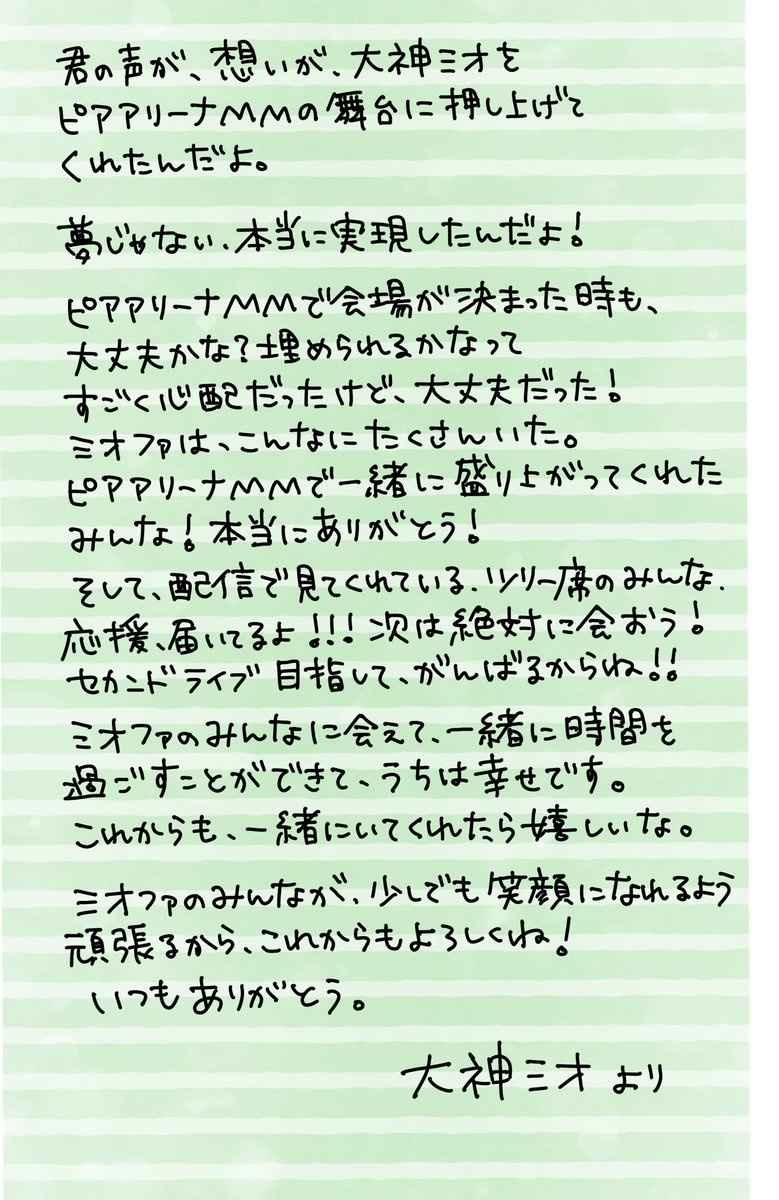 君の声が、想いが、大神ミオを
ピアアリーナMMの舞台に押し上げて
くれたんだよ。
夢じゃない、本当に実現したんだよ！
ピアアリーナMMで会場が決まった時も、
大丈夫かな？埋められるかなって
すごく心配だったけど、大丈夫だった！
ミオファは、こんなにたくさんいた。
ピアアリーナMMで一緒に盛り上がってくれた
みんな！本当にありがとう！
そして、配信で見てくれている、ツリー席のみんな、
応援、届いてるよ！！！次は絶対に会おう！
セカンドライブ目指して、がんばるからね！！
ミオファのみんなに会えて、一緒に時間を
過ごすことができて、うちは幸せです。
これからも、一緒にいてくれたら嬉しいな。
ミオファのみんなが、少しでも笑顔になれるよう
頑張るから、これからもよろしくね！
いつもありがとう。
大神ミオより